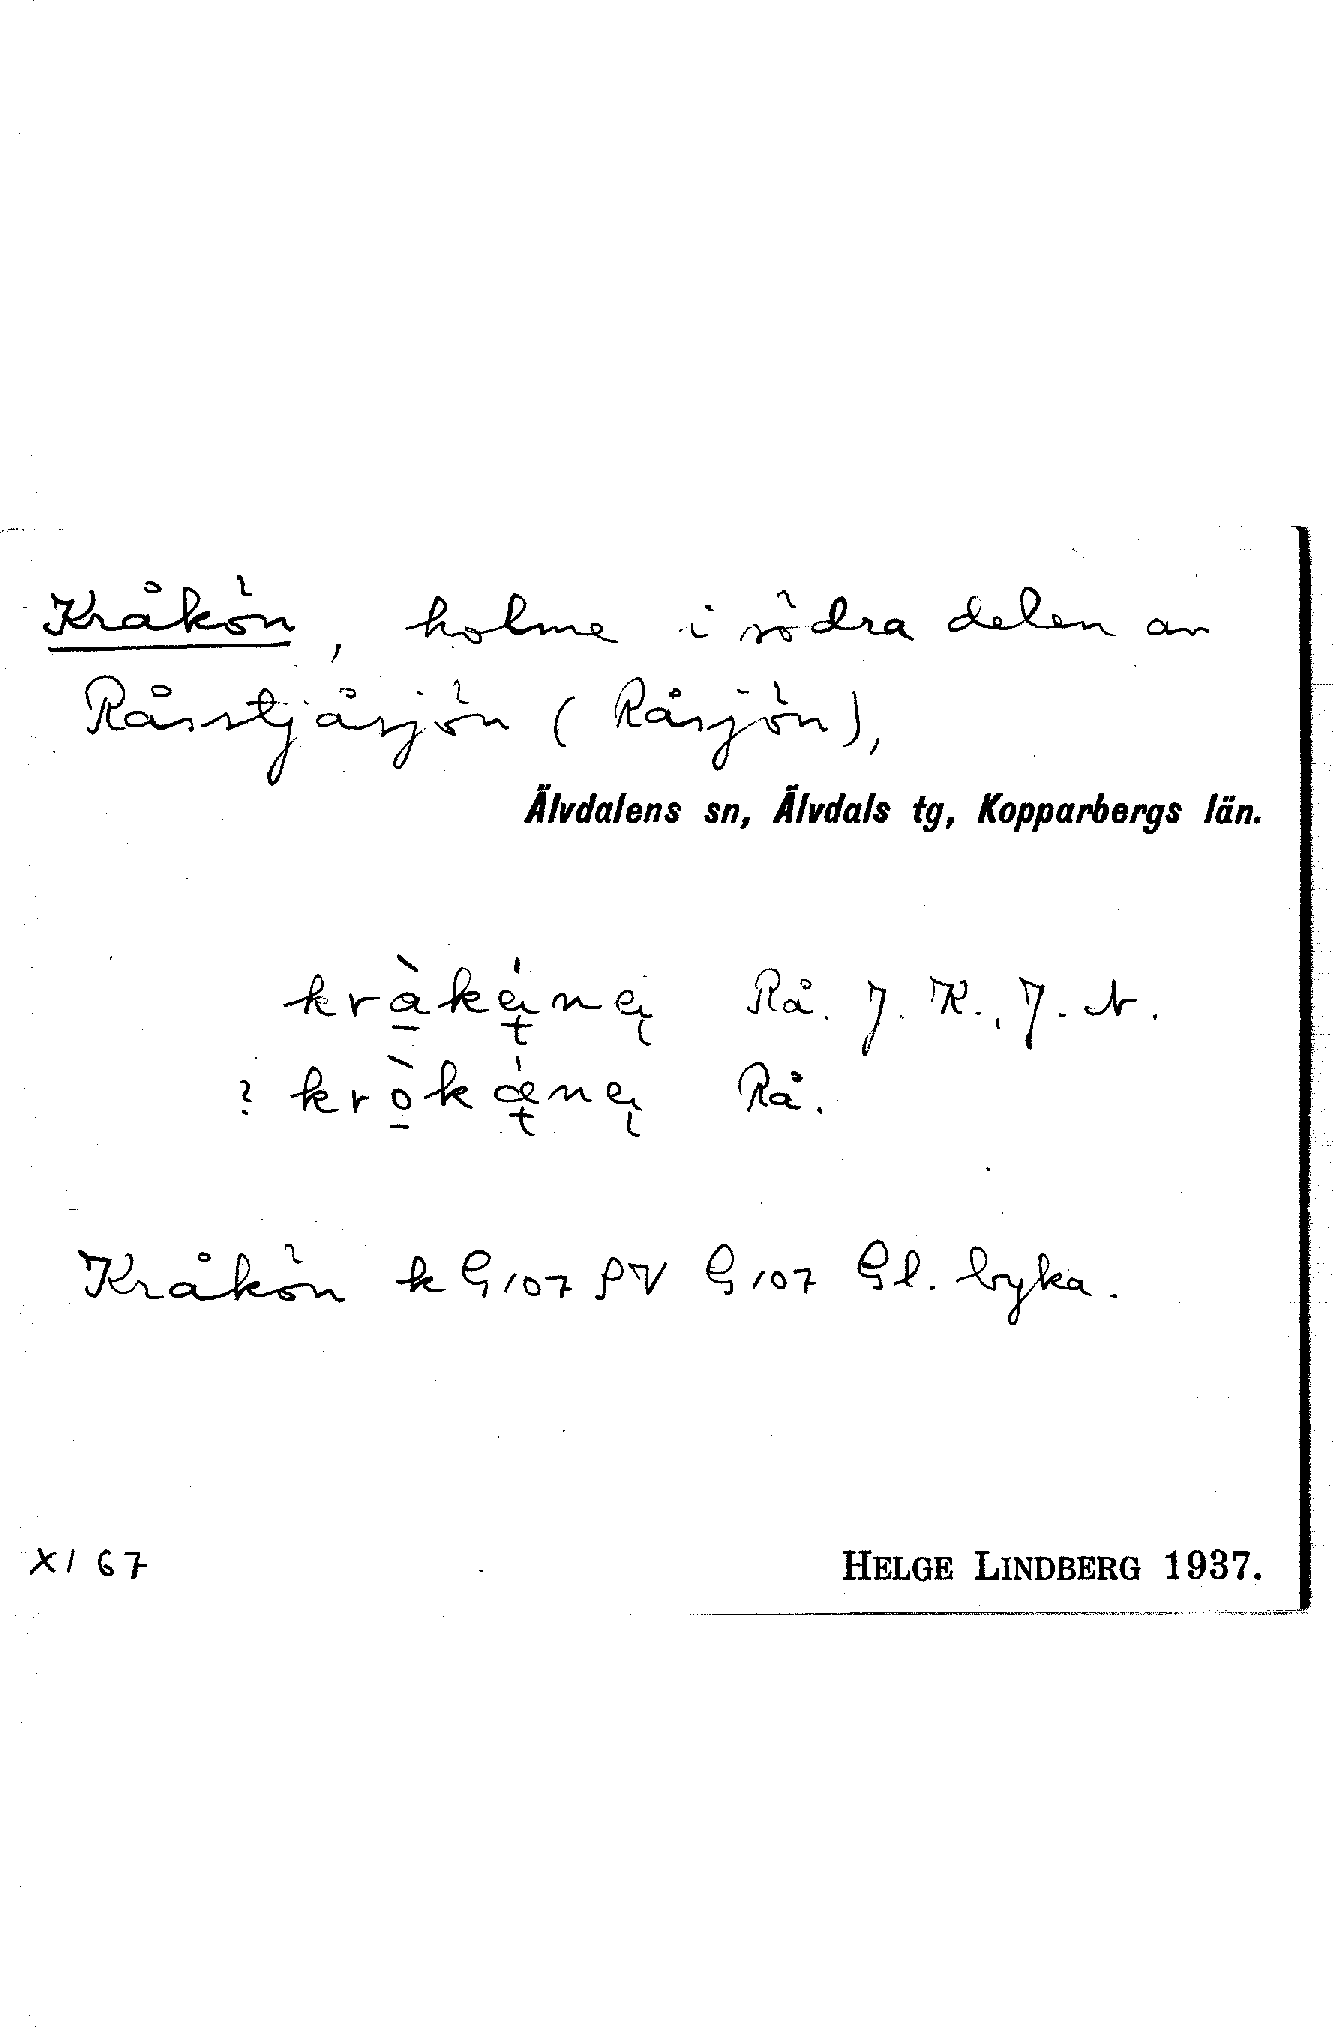 Kråkön, holme i södra delen av
Råsstjåsjön (Råsjön),
Älvdalens sn, Älvdals tg, Kopparbergs län.
kràkę́nę Rå. J. K., J. N.
? kròkǽnę Rå.
Kråkön k G107 SV G107 Gl. byka.
XI 67
HELGE LINDBERG 1937.